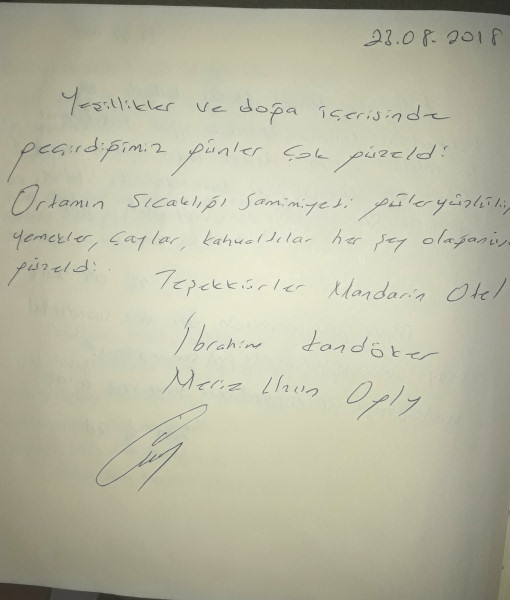 23.08.2018
Yeşillikler ve doğa içerisinde
geçirdiğimiz günler çok güzeldi.
Ortamın sıcaklığı samimiyeti güleryüzlülü
yemekler, çaylar, kahvaltılar her şey olağanüs
güzeldi.
Teşekkürler Mandarin Otel
İbrahim
Oğlu